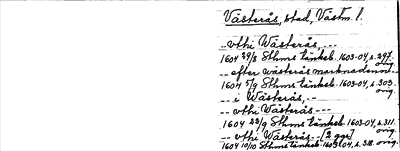 Västerås, stad, Västm. l.
-- vthi Wästerås, --
1604 29/8 Sthms tänkeb. 1603-04, s. 297.
orig.
-- efter wästerås marknadenn --
1604 5/9 Sthms tänkeb. 1603-04, s. 303.
orig.
-- i Wästerås, --
-- vthi Wästerås --
1604 22/9 Sthms tänkeb. 1603-04, s. 311.
orig.
-- vthi Wästerås -- [2 ggr]
1604 10/10 Sthms tänkeb. 1603-04, s. 318. orig.